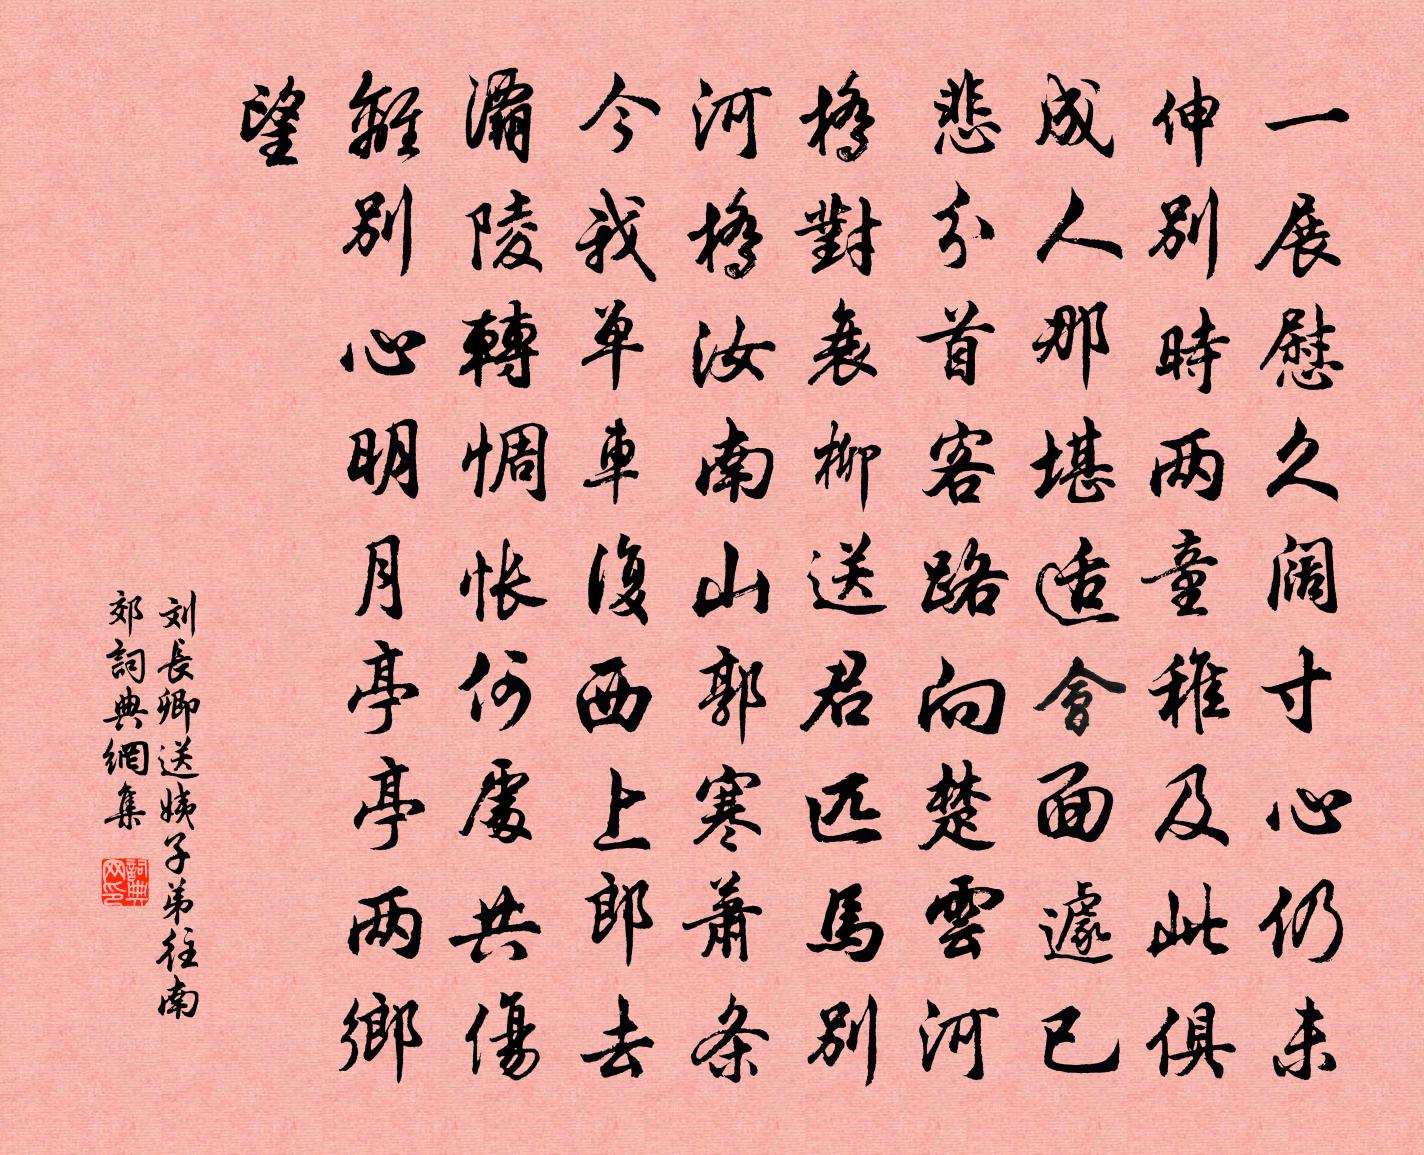 一展慰久阔寸心仍未
伸别時两童稚及此俱
成人那堪适會面遽已
悲分首客路向楚雲河
橋對衰柳送君匹馬别
河橋汝南山郭寒蕭条
今我单車復西上郎去
灞陵轉惆怅何處共傷
離别心明月亭亭两鄉
望
刘長卿送姨子弟往南
郊詞典網集
詞典网印